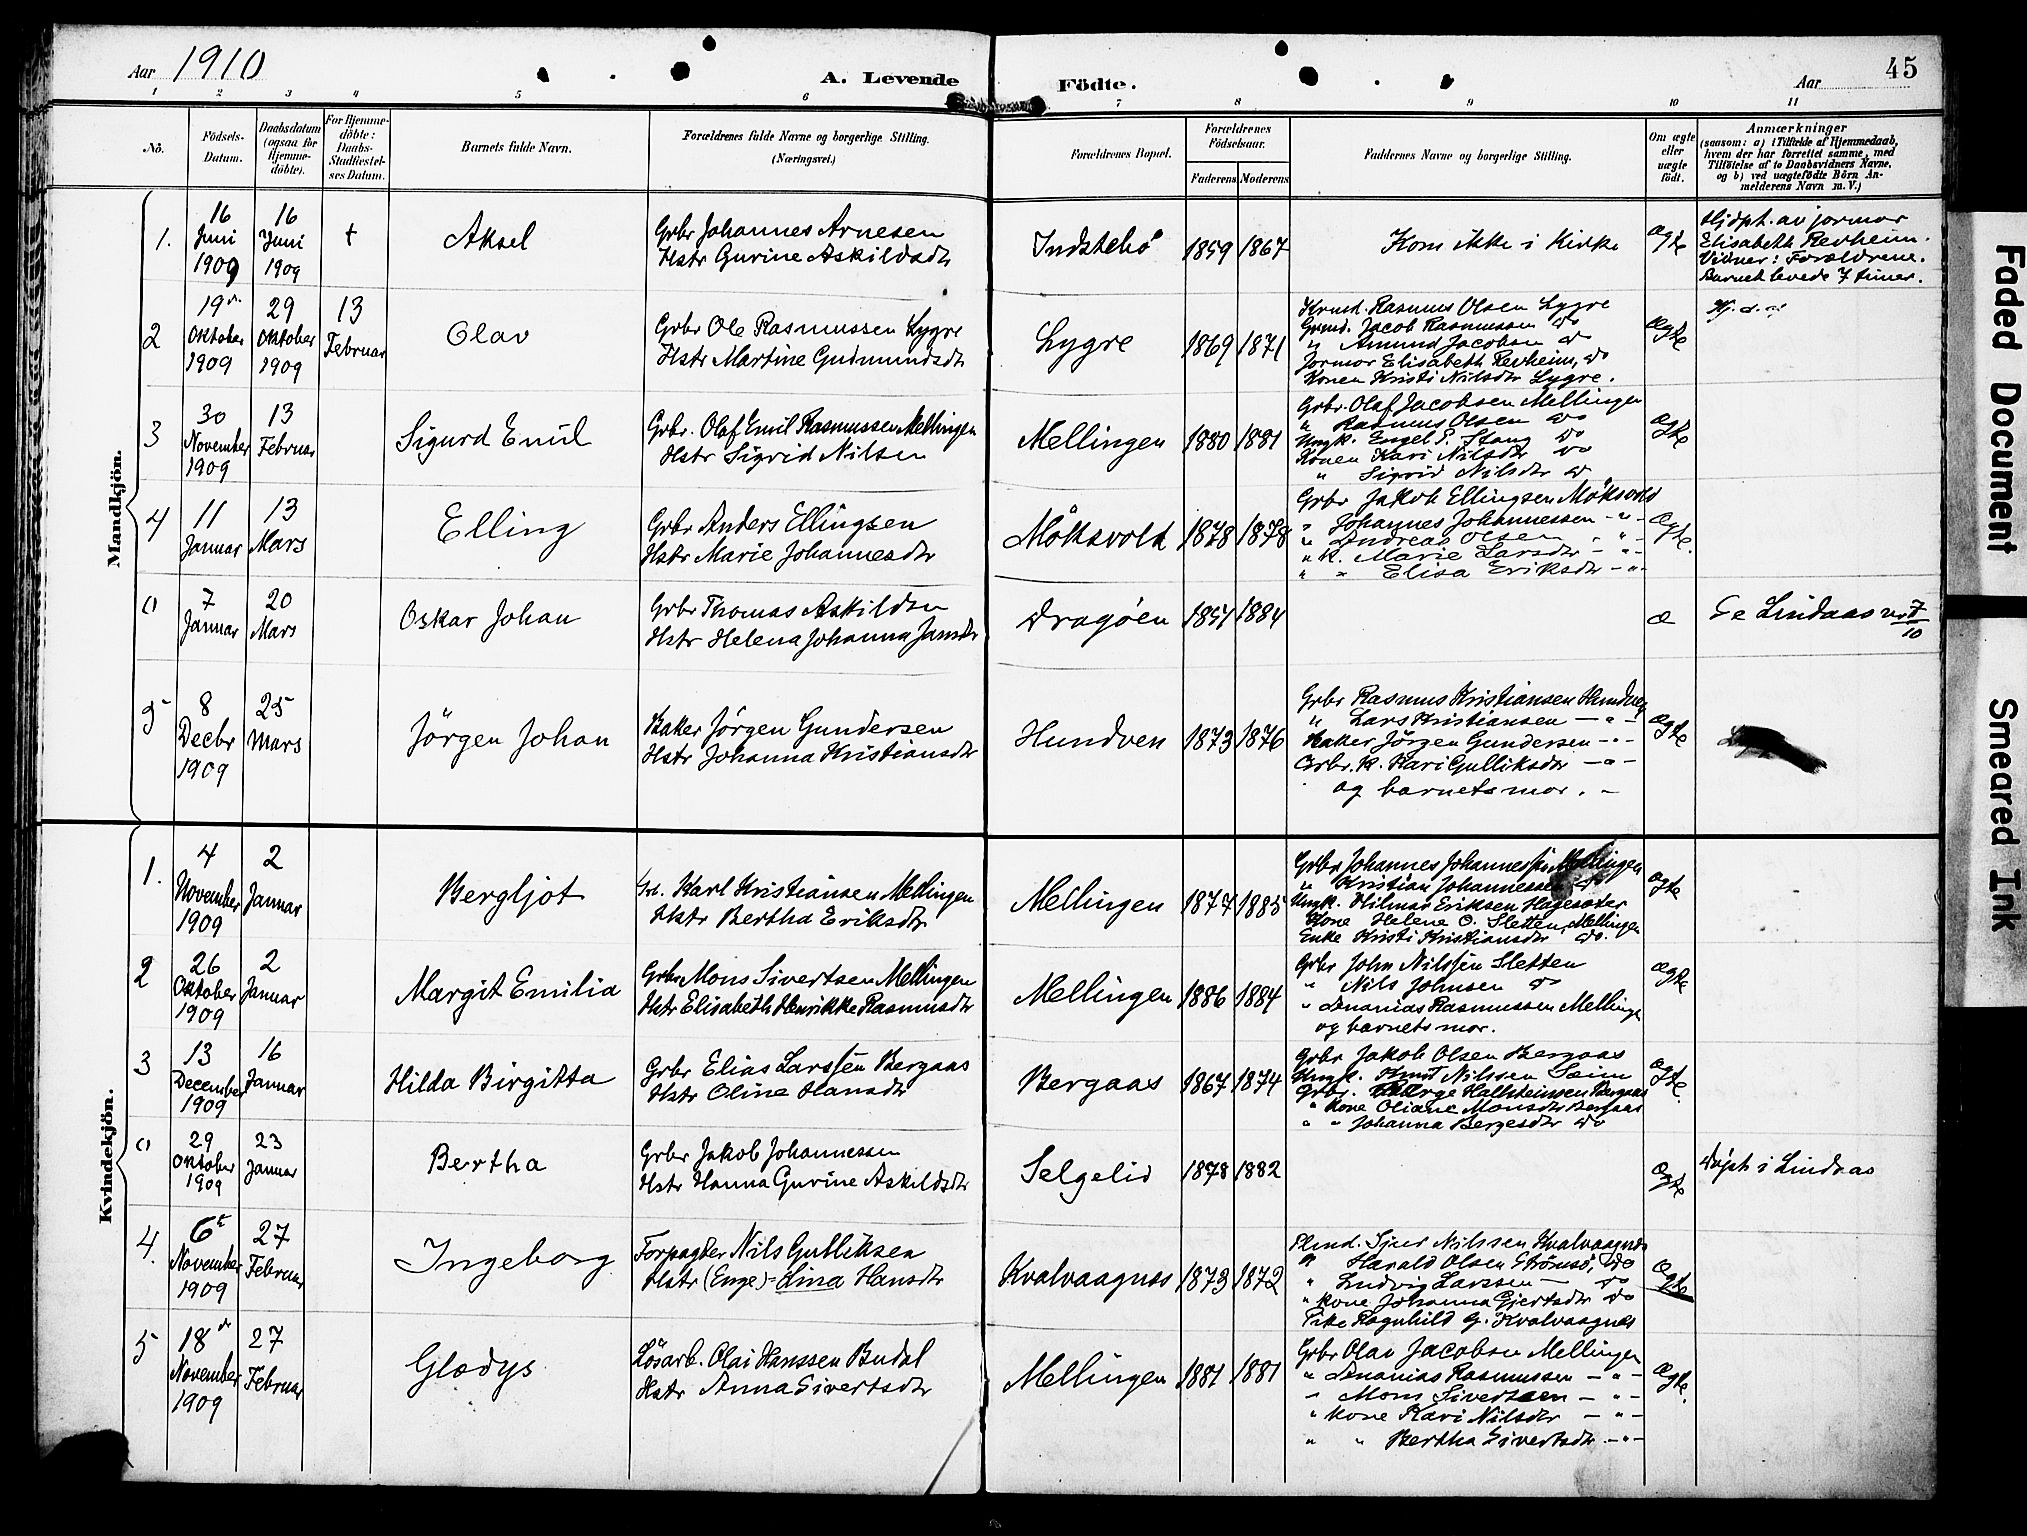 Aar 1910
A. Levende Födte.
Aar
45
1 2 3 4 5 6 7 8 9 10 11
Nô.
Födsels-
Datum.
Daabsdatum
(ogsaa for
Hjemme-
döbte).
For Hjemme-
döbte:
Daabs-
Stadfæstel-
ses Datum.
Barnets fulde Navn.
Forældrenes fulde Navne og borgerlige Stilling.
(Næringsvei.)
Forældrenes Bopæl.
Forældrenes
Födselsaar.
Faderens Moderens
Faddernes Navne og borgerlige Stilling.
Om ægte
eller
uægte
födt.
Anmærkninger
(saasom: a) i Tilfælde af Hjemmedaab,
hvem der har forrettet samme, med
Tilföielse af to Daabsvidners Navne,
og b) ved uægtefödte Börn An-
melderens Navn m. V.)
Mandkjön.
1.
16
Juni
1909
16
Juni
1909
+
Aksel
Grbr Johannes Arnesen
Hstr Gurine Askildsdtr
Indstebö
1859 1867
Kom ikke i Kirke
Ægte
Hjdpt. av jormor
Elisabeth Revheim.
Vidner: Forældrene.
Barnet levede 7 timer.
2
19de
Oktober
1909
29
Oktober
1909
13
Februar
Olav
Grbr Ole Rasmussen Lygre
Hstr Martine Gudmundsdtr
Lygre
1869 1871
Grmd. Rasmus Olsen Lygre
Grmd. Jacob Rasmussen do
" Amund Jacobsen do
Jormor Elisabeth Revheim, do
Konen Kristi Nilsdtr Lygre.
Ægte
3
30
November
1909
13
Februar
Sigurd Emil
Grbr. Olaf Emil Rasmussen Mellingen
Hstr Sigrid Nilsen
Mellingen
1880 1881
Grbr. Olaf Jacobsen Mellingen
" Rasmus Olsen do
Ungk. Engel P. Stang do
Konen Kari Nilsdtr do
" Sigrid Nilsdtr do
Ægte
4
11
Januar
13
Mars
Elling
Grbr Anders Ellingsen
Hstr Marie Johannesdtr
Möksvold
1878 1878
Grbr Jakob Ellingsen Möksvold
" Johannes Johannessen - " -
" Andreas Olsen - " -
" K. Marie Larsdtr - " -
" " Elisa Eriksdtr - " -
Ægte.
0
7
Januar
20
Mars
Oskar Johan
Grbr Thomas Askildsen
Hstr Helena Johanna Jansdtr
Dragöen
1851 1884
Æ
Se Lindaas nr 7/10
5
8
Decbr
1909
25
Mars
Jörgen Johan
Baker Jörgen Gundersen
Hstr Johanna Kristiansdtr
Hundven
1873 1876
Grbr Rasmus Kristiansen Hundven
" Lars Kristiansen - " -
Baker Jörgen Gundersen - " -
Grbr. K. Kari Gulliksdtr - " -
og barnets mor. -
Ægte
Kvindekjön.
1.
4
November
1909
2
Januar
Bergljot
Grb. Karl Kristiansen Mellingen
Hstr Bertha Eriksdtr
Mellingen
1877 1885
Grbr Johannes Johannessen Mellingen
" Kristian Johannessen do
Ungk. Hilmar Eriksen Hagesæter
Kone Helene O. Sletten, Mellingen
Enke Kristi Kristiansdtr do.
Ægte
2
26
Oktober
1909
2
Januar
Margit Emilia
Grbr Mons Sivertsen Mellingen
Hstr Elisabeth Henrikke Rasmusdtr
Mellingen
1886 1884
Grbr John Nilssen Sletten
" Nils Johnsen do
" Ananias Rasmussen Mellingen
og barnets mor.
Ægte
3
13
December
1909
16
Januar
Hilda Birgitta
Grbr Elias Larssen Bergaas
Hstr Oline Hansdtr
Bergaas
1867 1874
Grbr Jakob Olsen Bergaas
Ungk. Knut Nilssen Seim
Grbr. Børge Halsteinsen Bergaas
" Kone Oliane Monsdtr Bergaas
" " Johanna Bergesdtr do
Ægte.
0
29
Oktober
1909
23
Januar
Bertha
Grbr Jakob Johannessen
Hstr Hanna Gurine Askildsdtr
Selgelid
1878 1882
Ægte
Döpt i Lindaas
4.
6te
November
1909
27
Februar
Ingeborg
Forpagter Nils Gulliksen
Hstr (Enge) - Lina Hansdtr
Kvalvaagnes
1873 1872
Plmd. Sjur Nilssen Kvalvaagnes
" Harald Olsen Strömsö, do
" Ludvig Larssen - do
" Kone Johanna Gjertsdtr do
Pike Ragnhild G. Kvalvaagnes
Ægte
5
18de
November
1909
27
Februar
Glodys
Lösarb. Olai Hanssen Budal
Hstr Anna Sivertsdtr
Mellingen
1881 1881
Grbr Olav Jacobsen Mellingen
" Ananias Rasmussen - " -
" Mons Sivertsen - " -
" Kone Kari Nilsdtr - " -
" " Bertha Sivertsdtr - " -
Ægte.
Faded Document
Smeared Ink